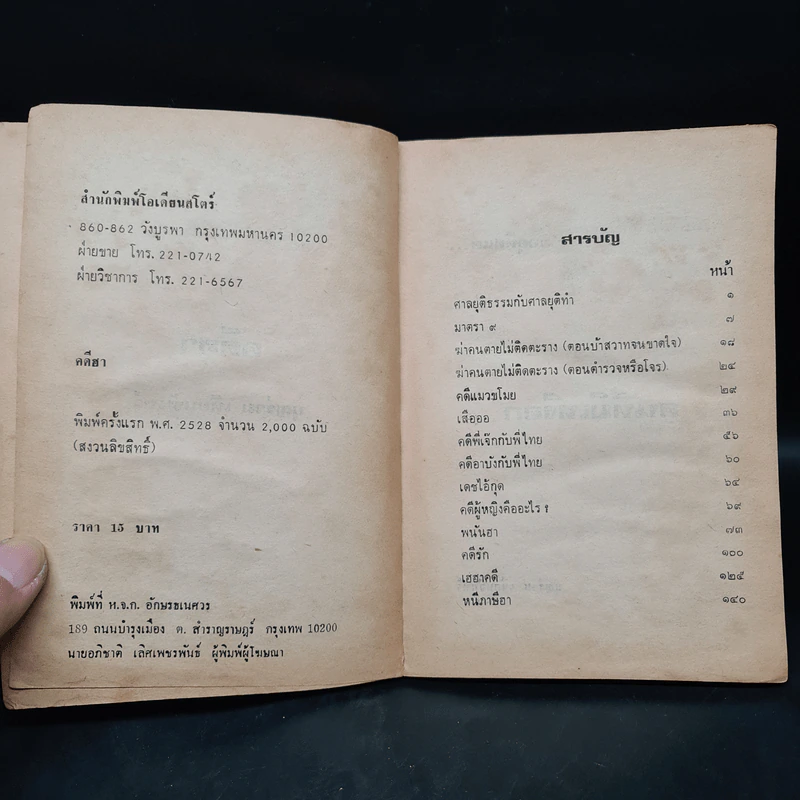 สำนักพิมพ์โอเดียนสโตร์
860-862 วังบูรพา กรุงเทพมหานคร 10200
ฝ่ายขาย โทร. 221-0742
ฝ่ายวิชาการ โทร. 221-6567
คดีฮา
พิมพ์ครั้งแรก พ.ศ. 2528 จำนวน 2,000 ฉบับ
(สงวนลิขสิทธิ์)
ราคา 15 บาท
พิมพ์ที่ ห.จ.ก. อักษรธเนศวร
189 ถนนบำรุงเมือง ต. สำราญราษฎร์ กรุงเทพ 10200
นายอภิชาติ เลิศเพชรพันธ์ ผู้พิมพ์ผู้โฆษณา
สารบัญ
หน้า
ศาลยุติธรรมกับศาลยุติทำ ๑
มาตรา ๙ ๗
ฆ่าคนตายไม่ติดตะราง (ตอนบ้าสวาทจนขาดใจ) ๑๘
ฆ่าคนตายไม่ติดตะราง (ตอนตำรวจหรือโจร) ๒๔
คดีแมวขโมย ๒๙
เสือออ ๓๖
คดีพี่เจ๊กกับพี่ไทย ๕๖
คดีอาบังกับพี่ไทย ๖๐
เดชไอ้กุด ๖๔
คดีผู้หญิงคืออะไร ? ๖๙
พนันฮา ๗๓
คดีรัก ๑๐๐
เฮฮาคดี ๑๒๕
หนีภาษีฮา ๑๔๐